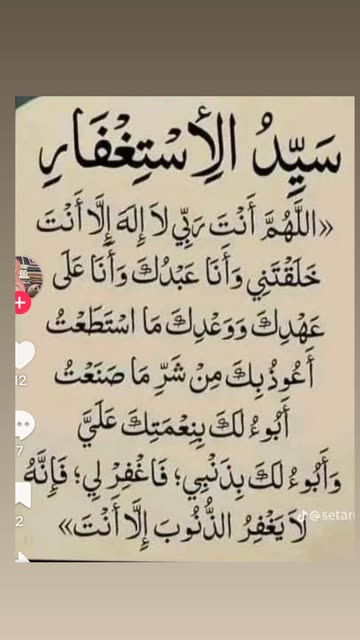 سَيِّدُ الْإِسْتِغْفَارِ
«اللَّهُمَّ أَنْتَ رَبِّي لَا إِلَهَ إِلَّا أَنْتَ
خَلَقْتَنِي وَأَنَا عَبْدُكَ وَأَنَا عَلَى
عَهْدِكَ وَوَعْدِكَ مَا اسْتَطَعْتُ
أَعُوذُ بِكَ مِنْ شَرِّ مَا صَنَعْتُ
أَبُوءُ لَكَ بِنِعْمَتِكَ عَلَيَّ
وَأَبُوءُ لَكَ بِذَنْبِي؛ فَاغْفِرْ لِي؛ فَإِنَّهُ
لَا يَغْفِرُ الذُّنُوبَ إِلَّا أَنْتَ»
12
7
2